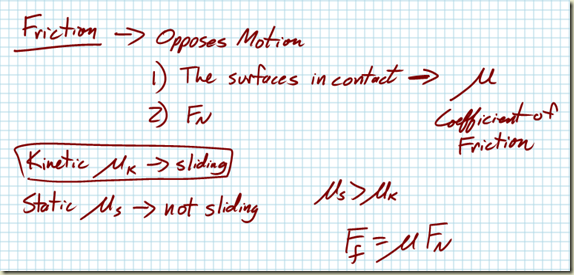 Friction → Opposes Motion
1) The surfaces in contact → μ
Coefficient of
Friction
2) FN
Kinetic μK → sliding
Static μs → not sliding
μs > μK
Ff = μ FN